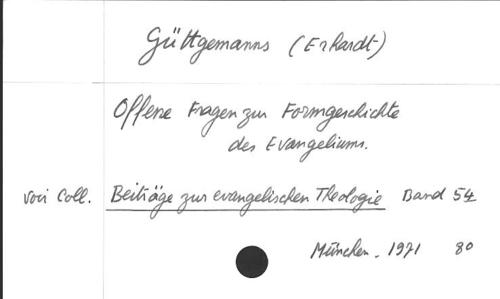 Güttgemanns (Erhardt)
Offene Fragen zur Formgeschichte
des Evangeliums.
voir Coll. Beiträge zur evangelischen Theologie Band 54
München. 1971 80